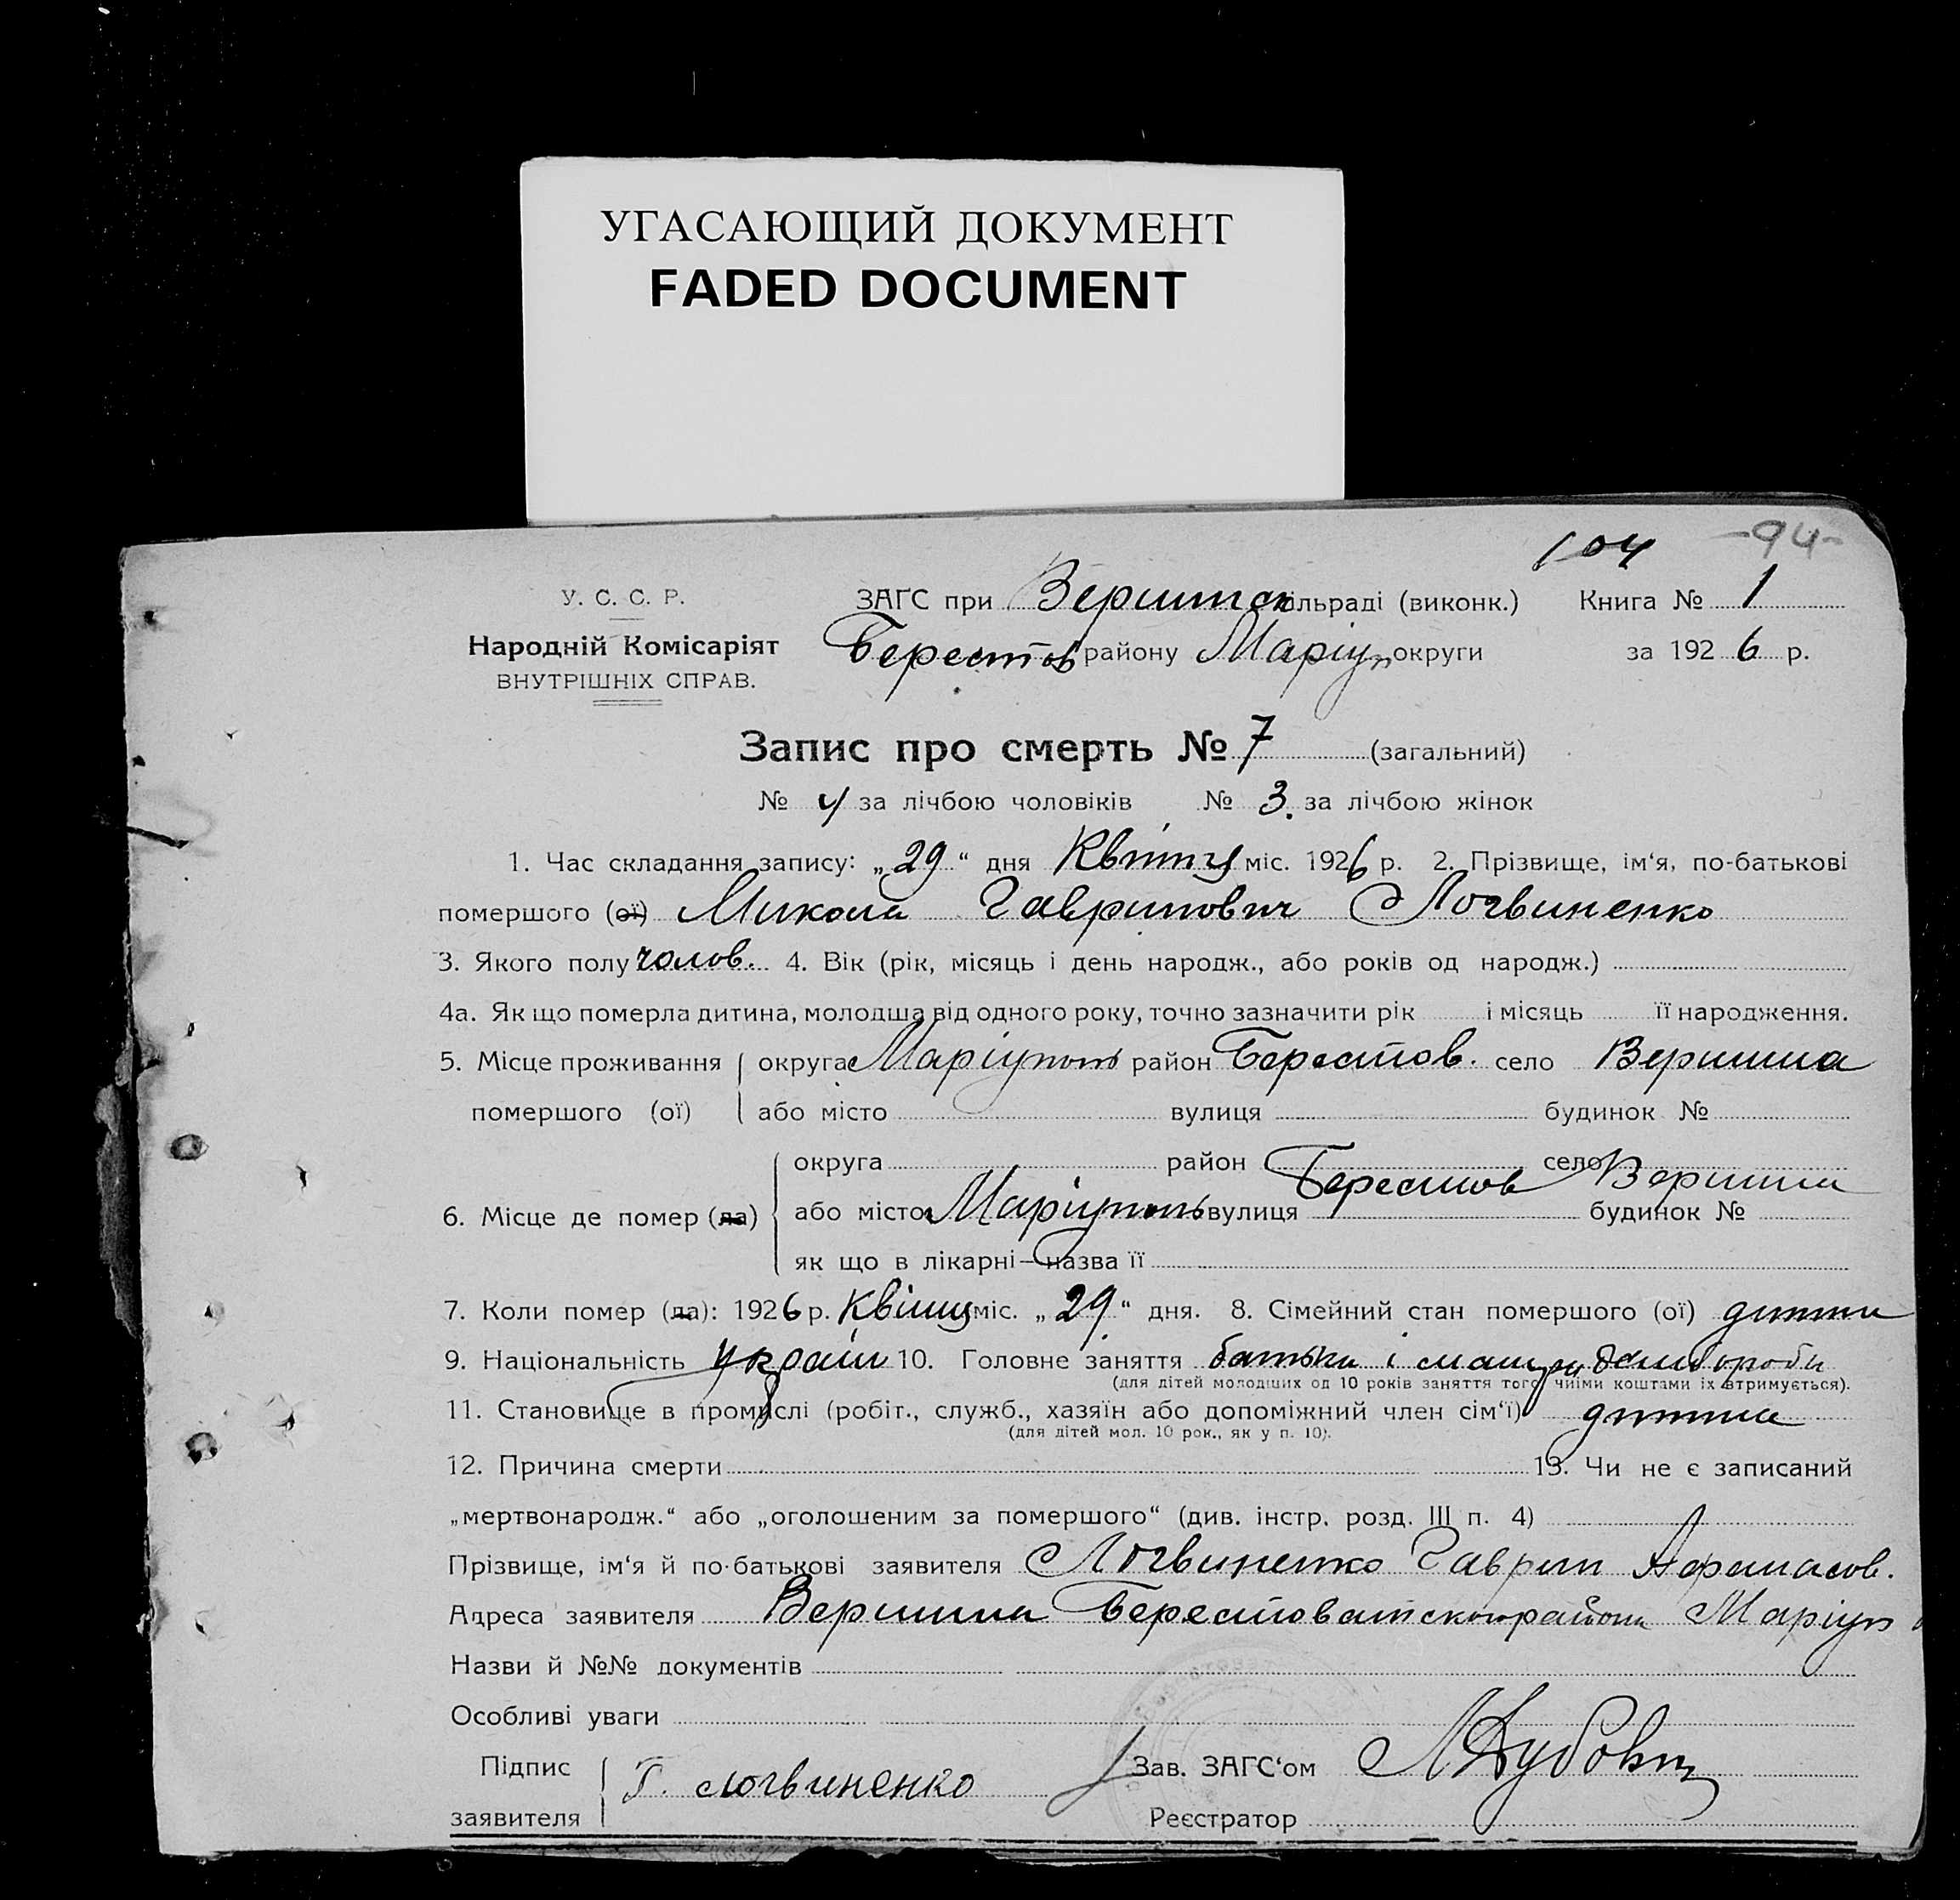 УГАСАЮЩИЙ ДОКУМЕНТ
FADED DOCUMENT
104 -94-
У. С. С. Р.
Народній Комісаріят
ВНУТРІШНІХ СПРАВ.
ЗАГС при Вершинск сільраді (виконк.) Книга № 1
Берестов району Маріуп округи за 1926 р.
Запис про смерть № 7 (загальний)
№ 4 за лічбою чоловіків № 3. за лічбою жінок
1. Час складання запису: „29“ дня Квітня міс. 1926 р. 2. Прізвище, ім‘я, по-батькові
помершого (ої) Микола Гаврилович Логвиненко
3. Якого полу чолов. 4. Вік (рік, місяць і день народж., або років од народж.)
4а. Як що померла дитина, молодша від одного року, точно зазначити рік і місяць її народження.
5. Місце проживання помершого (ої) округа Маріуполь район Берестов. село Вершина
або місто вулиця будинок №
6. Місце де помер (ла) округа район Берестов село Вершина
або місто Маріуполь вулиця будинок №
як що в лікарні—назва її
7. Коли помер (ла): 1926 р. Квітня міс. „29“ дня. 8. Сімейний стан помершого (ої) дитина
9. Національність україн 10. Головне заняття батька і матери хлібороби
(для дітей молодших од 10 років заняття того, чиїми коштами їх втримується).
11. Становище в промислі (робіт., служб., хазяїн або допоміжний член сім‘ї) дитина
(для дітей мол. 10 рок., як у п. 10).
12. Причина смерти 13. Чи не є записаний
„мертвонародж.“ або „оголошеним за помершого“ (див. інстр. розд. III п. 4)
Прізвище, ім‘я й по-батькові заявителя Логвиненко Гаврил Афанасов.
Адреса заявителя Вершина Берестоватского району Маріуп
Назви й №№ документів
Особливі уваги
Підпис заявителя Г. Логвиненко Зав. ЗАГС‘ом
Реєстратор